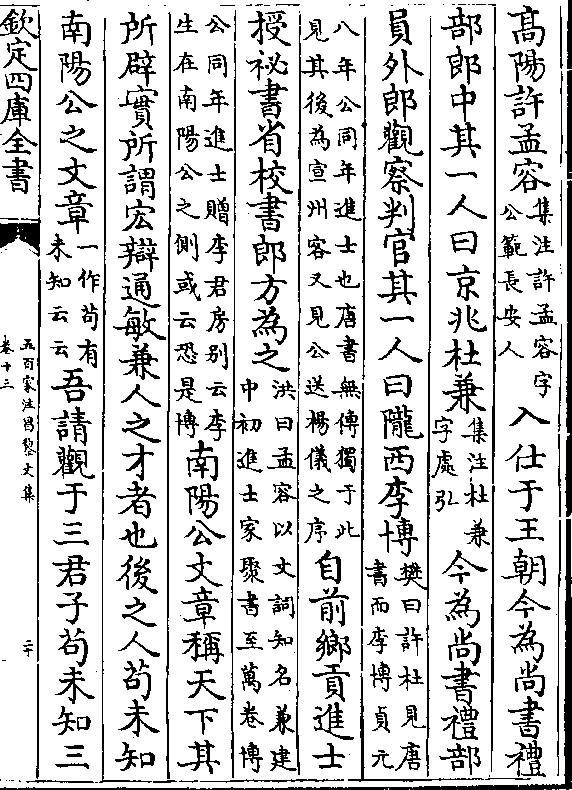 高陽許孟容集注許孟容字公範長安人入仕于王朝今為尚書禮
部郎中其一人曰京兆杜兼集注杜兼字處弘今為尚書禮部
員外郎觀察判官其一人曰隴西李博樊曰許杜見唐書而李博貞元
八年公同年進士也唐書無傳獨于此見其後為宣州客又見公送楊儀之序自前鄉貢進士
授祕書省校書郎方為之洪曰孟容以文詞知名兼建中初進士家聚書至萬卷博
公同年進士贈李君房别云李生在南陽公之側或云恐是博南陽公文章稱天下其
所辟實所謂宏辯通敏兼人之才者也後之人苟未知
南陽公之文章一作苟有未知云云吾請觀于三君子苟未知三
欽定四庫全書
五百家注昌黎文集
卷十三
二十